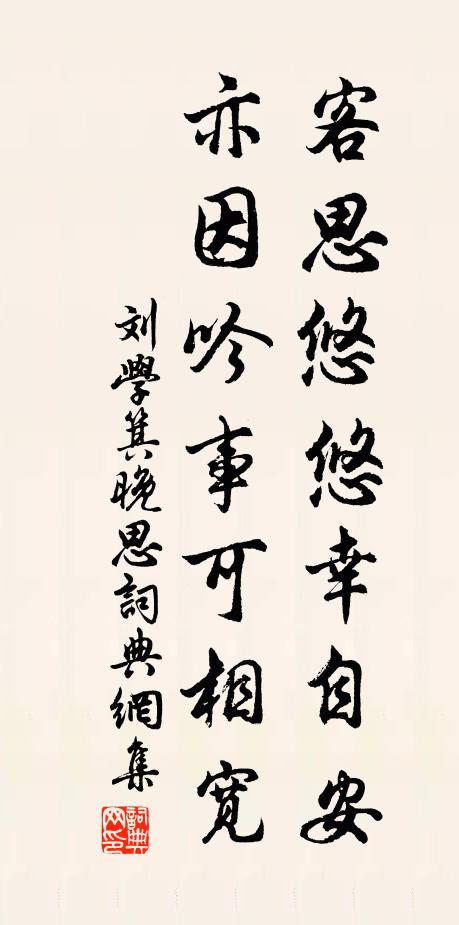 客思悠悠幸自安
亦因吟事可相寬
刘學箕晚思詞典網集
詞典網印